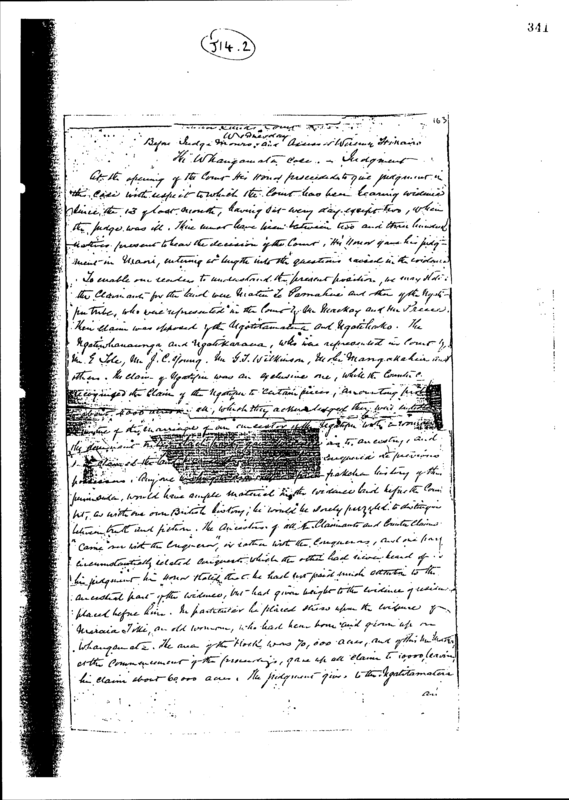 341
J14.2
163
Wednesday
Before Judge Monro and Assessor
The Whangamata Case. – Judgment
At the opening of the Court His Honor proceeded to give judgment in
the case with respect to which the Court has been hearing evidence
since the 13 of last month, having sat every day except two, when
the judge was ill. There must have been between two and three hundred
natives present to hear the decision of the Court. His Honor gave his judg-
ment in Maori, entering at length into the questions raised in the evidence
To enable our readers to understand the present position, we may state
the Claimants for the land were and others of the Ngati-
tribe, who were represented in the Court by Mr Mackay and Mr
Their claim was opposed by the Ngatitamatera and Ngatihako. The
Ngatiwhanaunga and Ngatikaraua, who was represented in Court by
Mr E. Mr J.C. Young, Mr G.T. Wilkinson, and
others. The claim of was an exclusive one, while the Counter C.
recognised the claim of the to certain pieces, amounting
about acres in all, which they acknowledged they were
of the marriage of an ancestor of the with a
the ancestry, and
claimed the as previous
Anyone history of the
peninsula, would have ample material in the evidence laid before the Court
but, as with our own British history, he would be sorely puzzled to distinguish
between truth and fiction. The Ancestors of all the Claimants and Counter Claimants
"came over with the Conqueror", or rather with the Conquerors, and one party
circumstantially related conquests which the other had never heard of.
his judgment his Honor stated that he had not paid much attention to the
ancestral part of the evidence, but had given weight to the evidence of
placed before him. In particular he placed stress upon the evidence of
Meraia , an old woman, who had been born and grown up on
Whangamata. The area of the block was 70,000 acres, and of this Mr
at the Commencement of the proceedings, gave up all claim to 10,000, leaving
his claim about 60,000 acres. The judgment gives to the Ngatitamatera
an